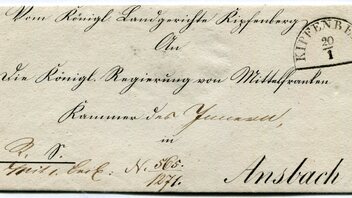 Vom Königl. Landgerichte Kipfenberg
An
Die Königl. Regierung von Mittelfranken
Kammer des Innern,
in
Ansbach
R. S.
N. 565.
1871.
KIPFENBE
20
1